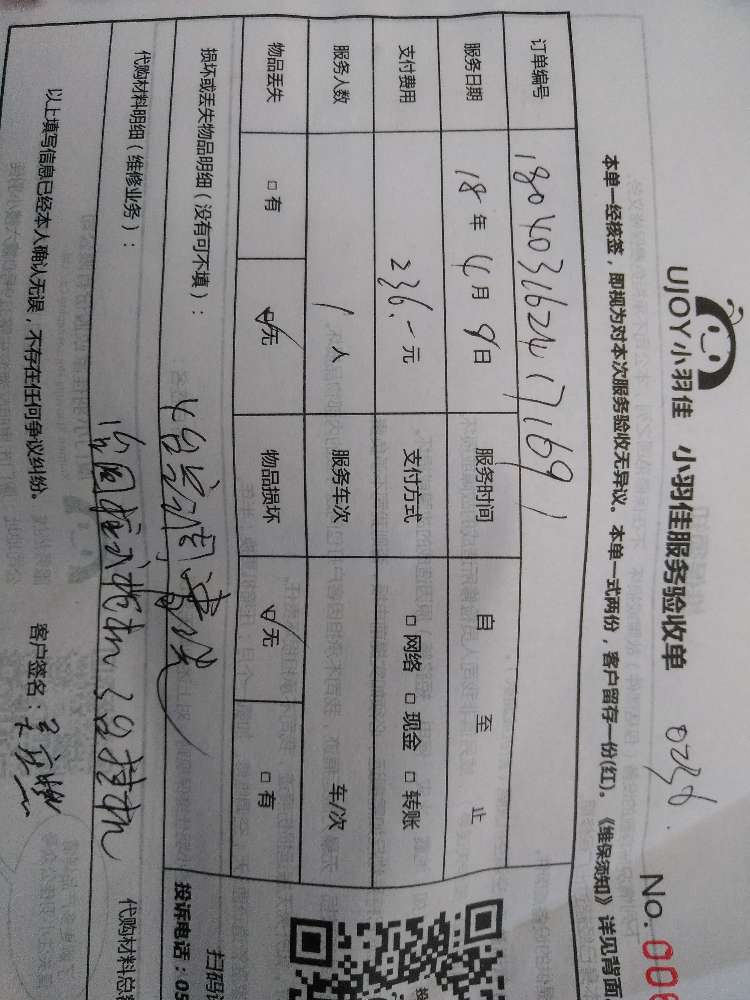 UJOY小羽佳 小羽佳服务验收单 0236
No.006
本单一经核签，即视为对本次服务验收无异议。本单一式两份，客户留存一份(红)。《维保须知》详见背面
订单编号 180403162417169
服务日期 18年4月9日 服务时间 自 至 止
支付费用 236.-元 支付方式 □网络 □现金 □转账
服务人数 1人 服务车次 车/次
物品丢失 □有 □无 物品损坏 □无 □有
损坏或丢失物品明细（没有可不填）：
4台空调清洗
代购材料明细（维修业务）：
代购材料总
以上填写信息已经本人确认无误，不存在任何争议纠纷。 客户签名：
扫码
投诉电话：05